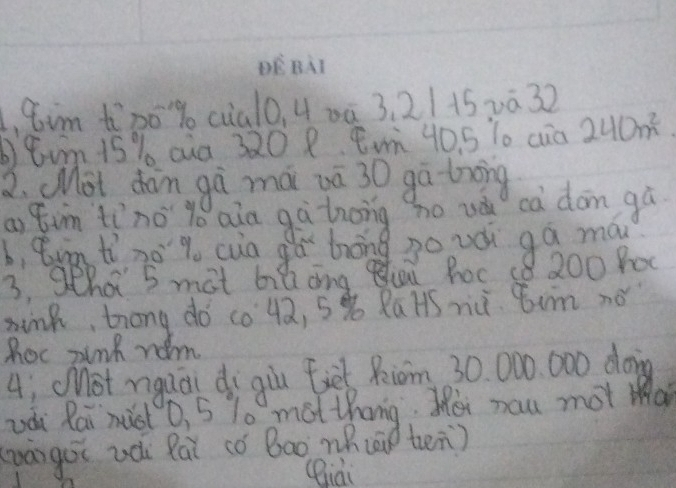 ĐỀ BÀI
1, Tìm tỉ số % của 10,4 và 3,2 | 15 và 32
b) Tìm 15% của 320 l. Tìm 40,5% của 240m²
2. Một đàn gà mái và 30 gà trống
a) Tìm tỉ số % của gà trống so với cả đàn gà.
b, Tìm tỉ số % của gà trống so với gà mái
3, Khối 5 một trường tiểu học có 200 học
sinh, trong đó có 42,5% là HS nữ. Tìm số
học sinh nam
4; Một người đi gửi tiết kiệm 30.000.000 đồng
với lãi suất 0,5% một tháng. Hỏi sau một tháng
(vàn gốc với lãi có bao nhiêu tiền)
Giải